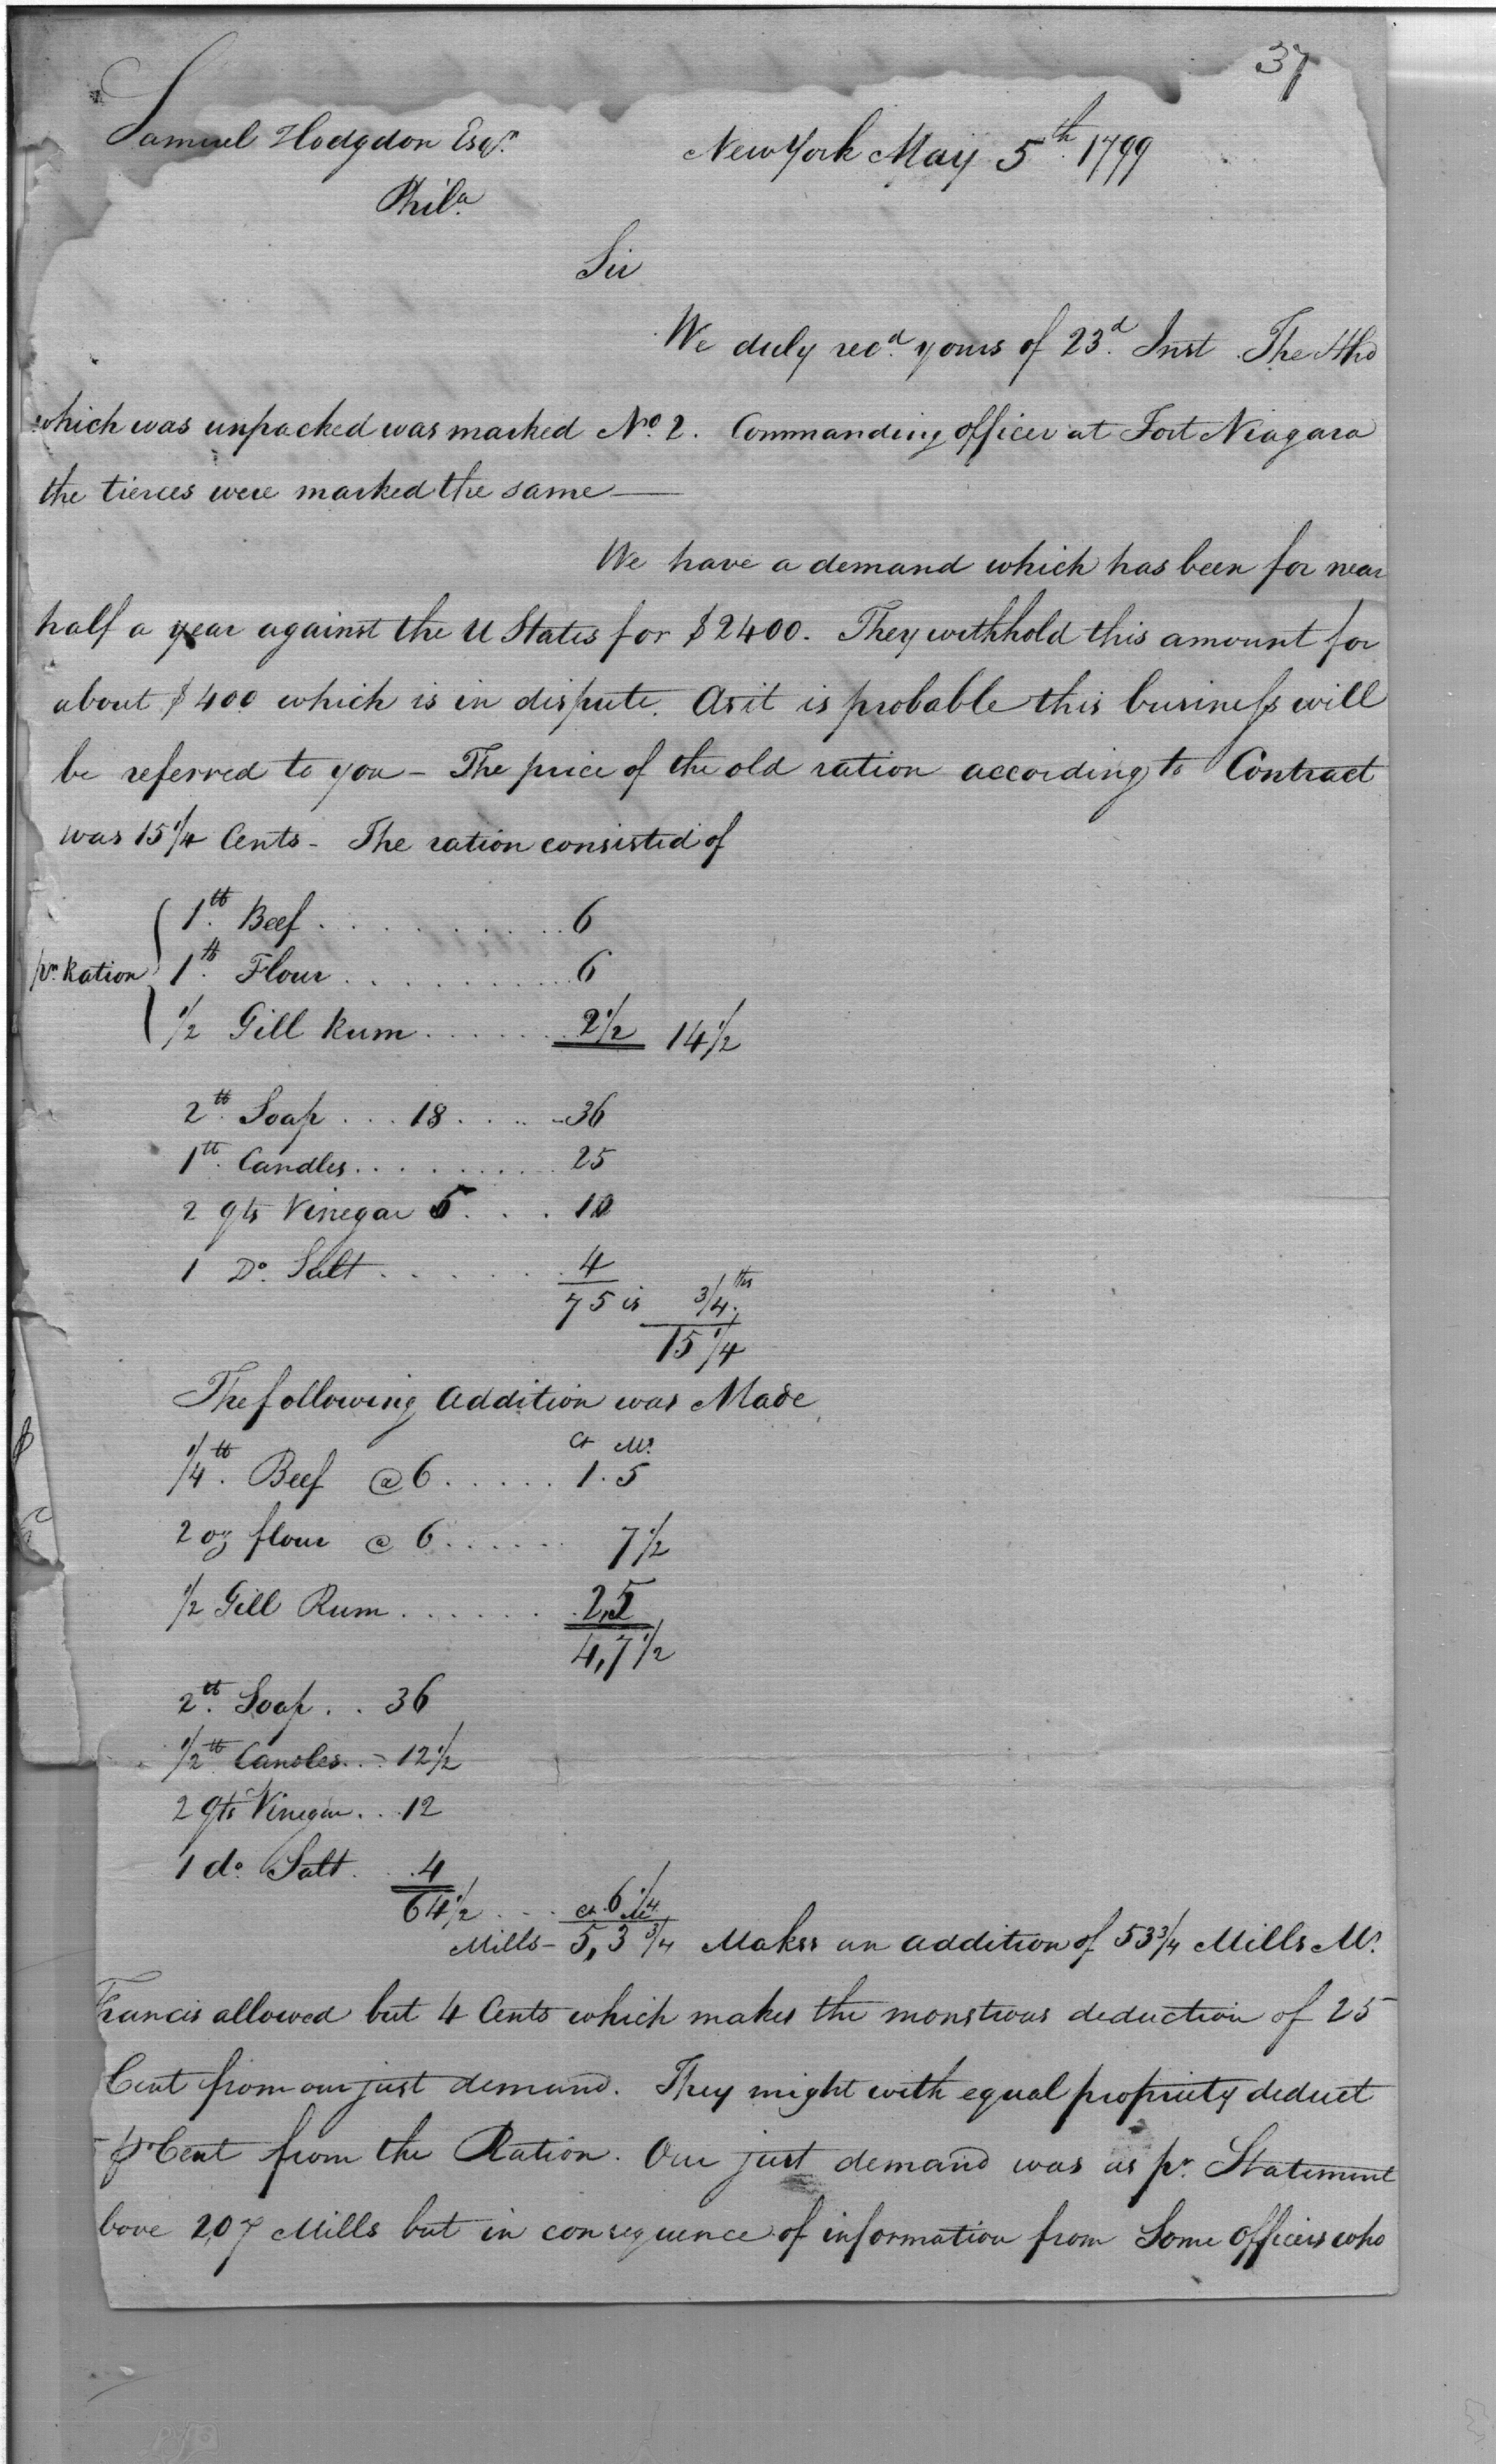 37
Samuel Hodgdon Esqr.
New York May 5th. 1799
Phila.
Sir
We duly recd. yours of 23d. Inst. The Hhd
which was unpacked was marked No. 2. Commanding officer at Fort Niagara
the tierces were marked the same —
We have a demand which has been for near
half a year against the U States for $2400. They withhold this amount for
about $400 which is in dispute. As it is probable this business will
be referred to you – The price of the old ration according to Contract
was 15 1/4 Cents – The ration consisted of
1 lb. Beef . . . . . . . . . . 6
pr. Ration 1 lb. Flour . . . . . . . . . . 6
1/2 Gill Rum . . . . . . 2 1/2 14 1/2
2 lb. Soap . . . 18 . . . . . 36
1 lb. Candles . . . . . . . . . 25
2 qts Vinegar 5 . . . 10
1 Do. Salt . . . . . . 4
75 is 3/4ths
15 1/4
The following addition was Made
Ct Ms.
1/4 lb. Beef @ 6 . . . . . 1. 5
2 oz flour @ 6 . . . . . . 7 1/2
1/2 Gill Rum . . . . . . 2,5
4,7 1/2
2 lb. Soap . . 36
1/2 lb Candles . . – 12 1/2
2 Qts Vinegar . . . 12
1 do. Salt . . 4
64 1/2 . . . 6 1/4
Ct. Ms.
Mills – 5,3 3/4 Makes an addition of 53 3/4 Mills Mr.
Francis allowed but 4 Cents which makes the monstrous deduction of 25
Cent from our just demand. They might with equal propriety deduct
pr Cent from the Ration. Our just demand was as pr. Statement
bove 207 Mills but in consequence of information from Some officers who